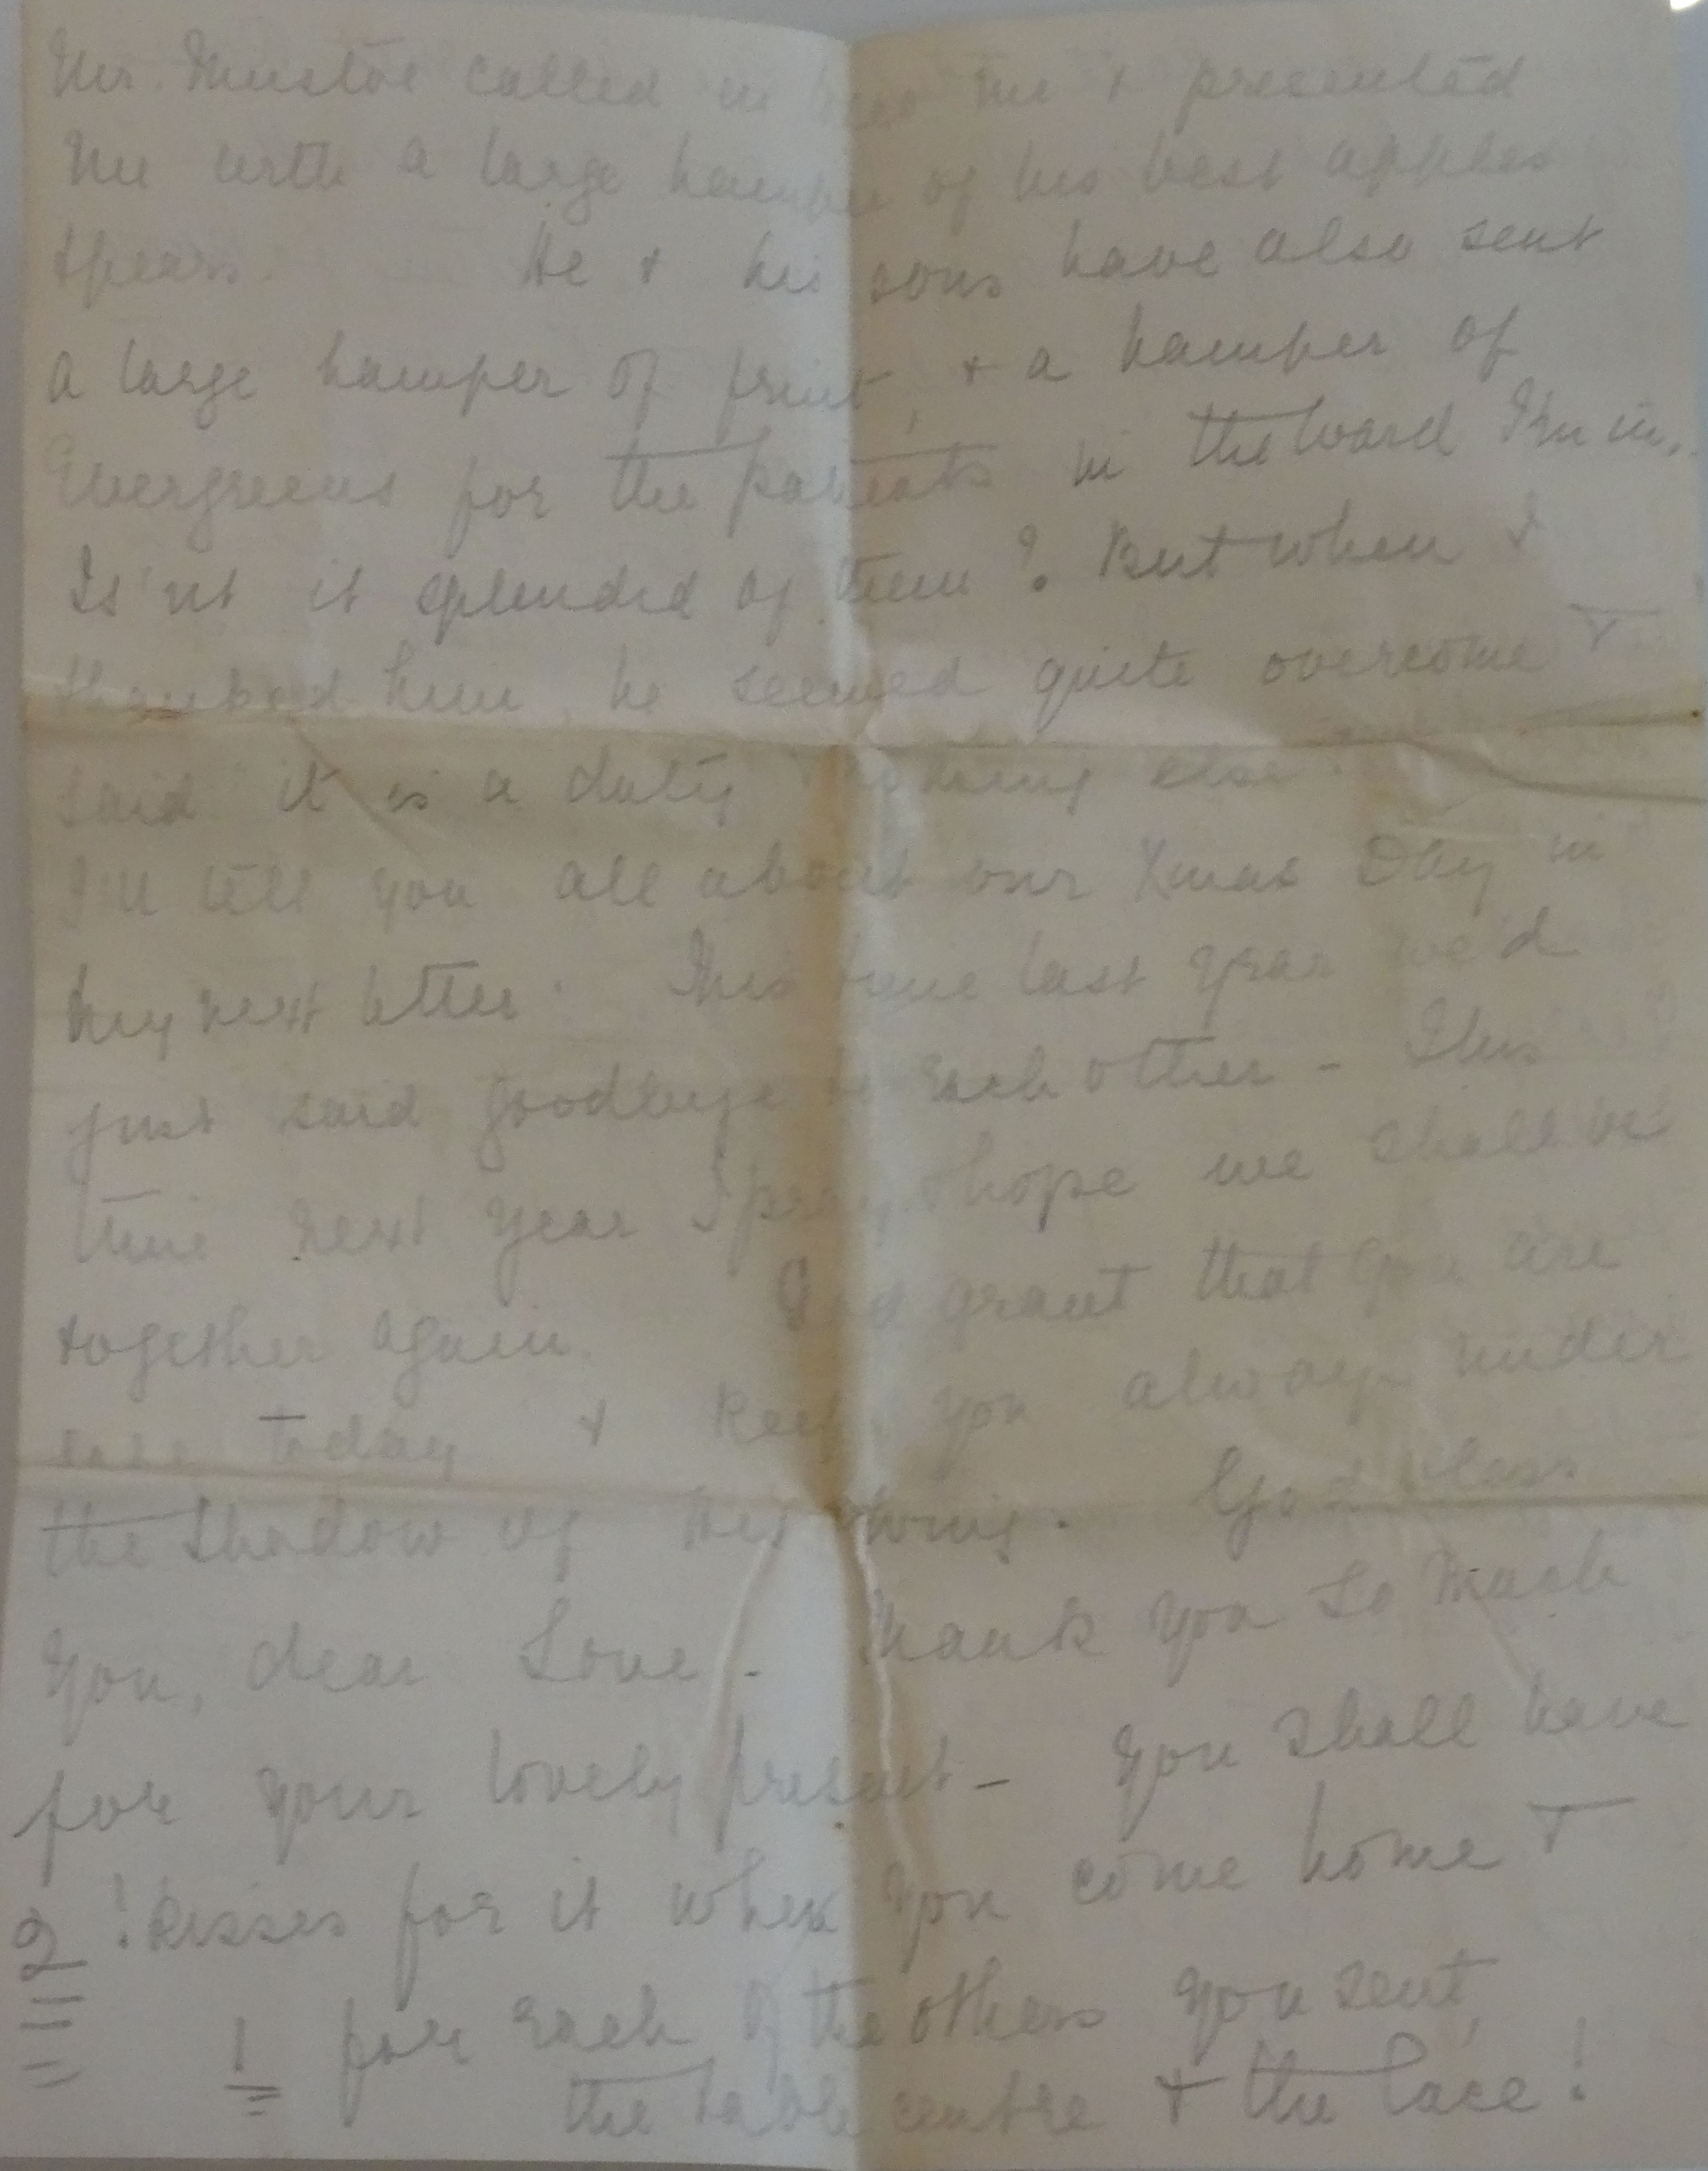 Mr. Mustoe called in me & presented
me with a large hamper of his best apples
& pears. He & his sons have also sent
a large hamper of fruit, & a hamper of
Evergreens for the patients in the Ward I'm in.
Is'nt it splendid of them? But when I
thanked him, he seemed quite overcome &
said it is a duty nothing else.
I'll tell you all about our Xmas Day in
my next letter. This time last year we'd
just said goodbye to each other - This
time next year I pray & hope we shall be
together again. God grant that you are
safe today & keep you always under
the shadow of His Wing. God bless
you, dear Love - Thank you so much
for your lovely present - You shall have
2! kisses for it when you come home &
1 for each of the others you sent,
the table centre & the lace!